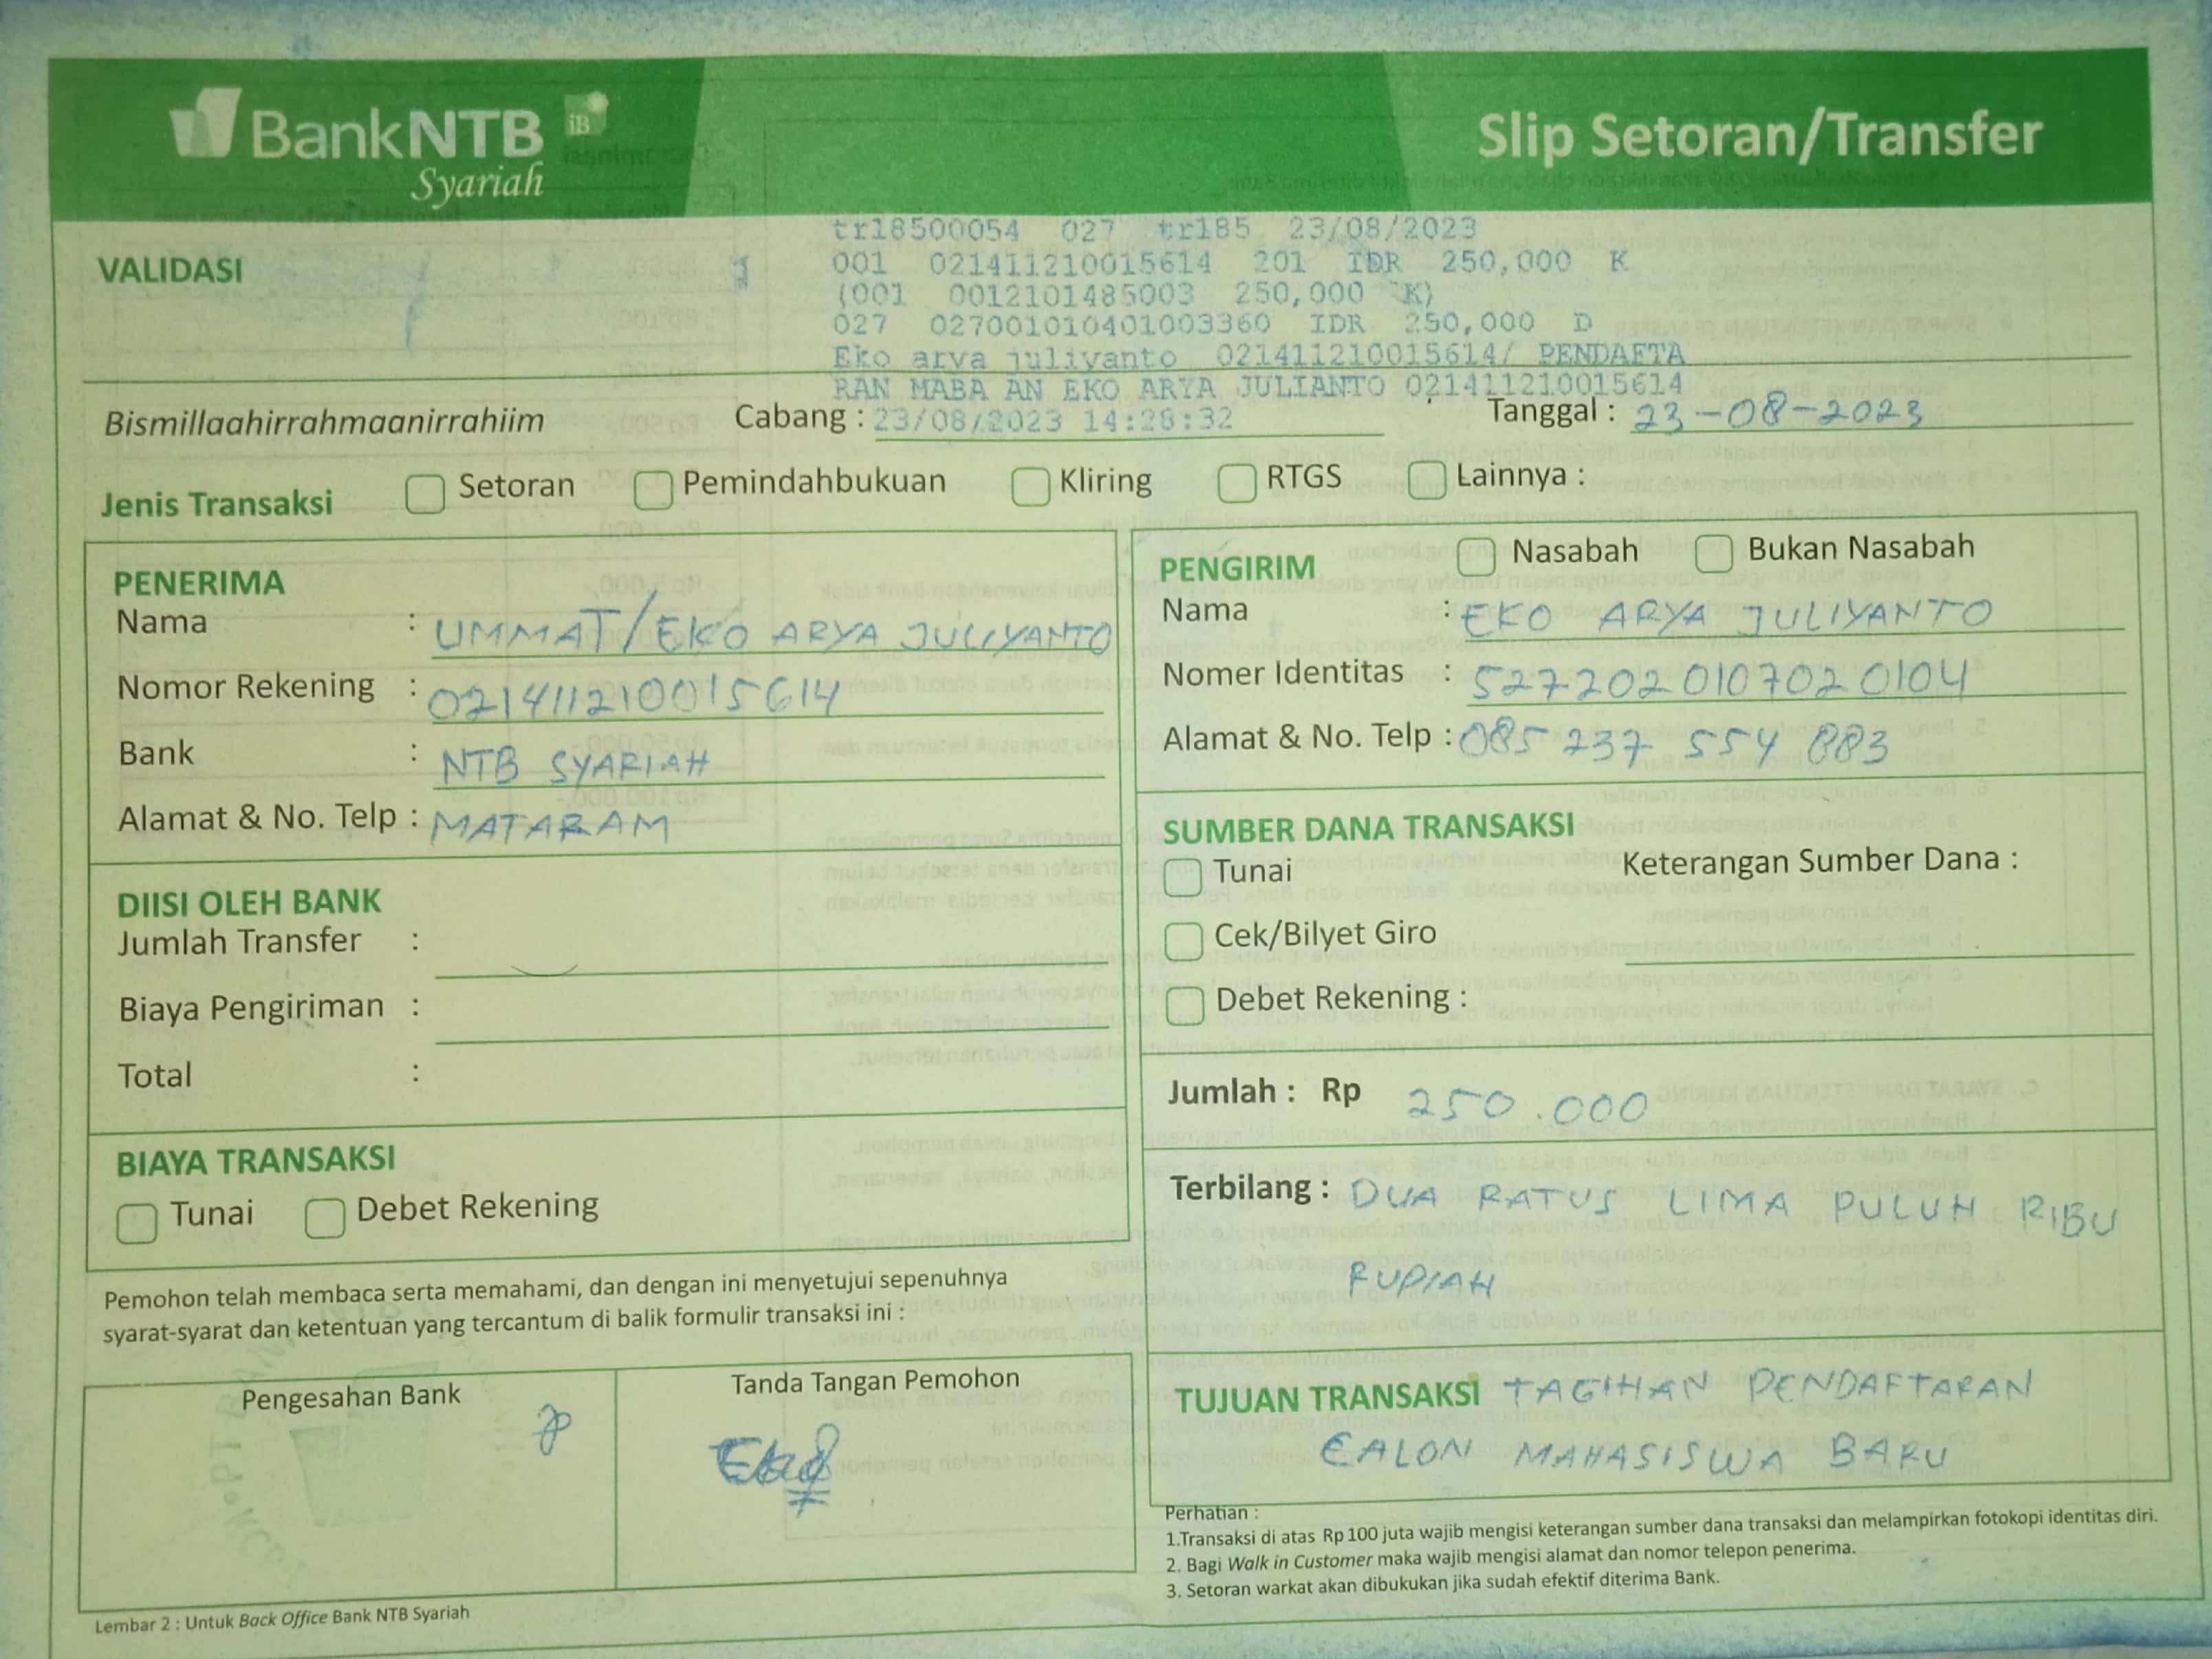 BankNTB iB
Syariah
Slip Setoran/Transfer
tr18500054 027 tr185 23/08/2023
VALIDASI
001 021411210015614 201 IDR 250,000 K
(001 0012101485003 250,000 K)
027 027001010401003360 IDR 250,000 D
Eko arya juliyanto 021411210015614/ PENDAFTA
RAN MABA AN EKO ARYA JULIANTO 021411210015614
Bismillaahirrahmaanirrahiim Cabang : 23/08/2023 14:28:32 Tanggal : 23-08-2023
Jenis Transaksi Setoran Pemindahbukuan Kliring RTGS Lainnya :
PENERIMA
Nama : UMMAT/EKO ARYA JULIYANTO
Nomor Rekening : 021411210015614
Bank : NTB SYARIAH
Alamat & No. Telp : MATARAM
PENGIRIM Nasabah Bukan Nasabah
Nama : EKO ARYA JULIYANTO
Nomer Identitas : 5272020107020104
Alamat & No. Telp : 085 237 554 883
DIISI OLEH BANK
Jumlah Transfer :
Biaya Pengiriman :
Total :
SUMBER DANA TRANSAKSI
Tunai Keterangan Sumber Dana :
Cek/Bilyet Giro
Debet Rekening :
BIAYA TRANSAKSI
Tunai Debet Rekening
Jumlah : Rp 250.000
Terbilang : DUA RATUS LIMA PULUH RIBU
RUPIAH
Pemohon telah membaca serta memahami, dan dengan ini menyetujui sepenuhnya
syarat-syarat dan ketentuan yang tercantum di balik formulir transaksi ini :
Pengesahan Bank Tanda Tangan Pemohon
TUJUAN TRANSAKSI TAGIHAN PENDAFTARAN
CALON MAHASISWA BARU
Perhatian :
1.Transaksi di atas Rp100 juta wajib mengisi keterangan sumber dana transaksi dan melampirkan fotokopi identitas diri.
2. Bagi Walk in Customer maka wajib mengisi alamat dan nomor telepon penerima.
3. Setoran warkat akan dibukukan jika sudah efektif diterima Bank.
Lembar 2 : Untuk Back Office Bank NTB Syariah